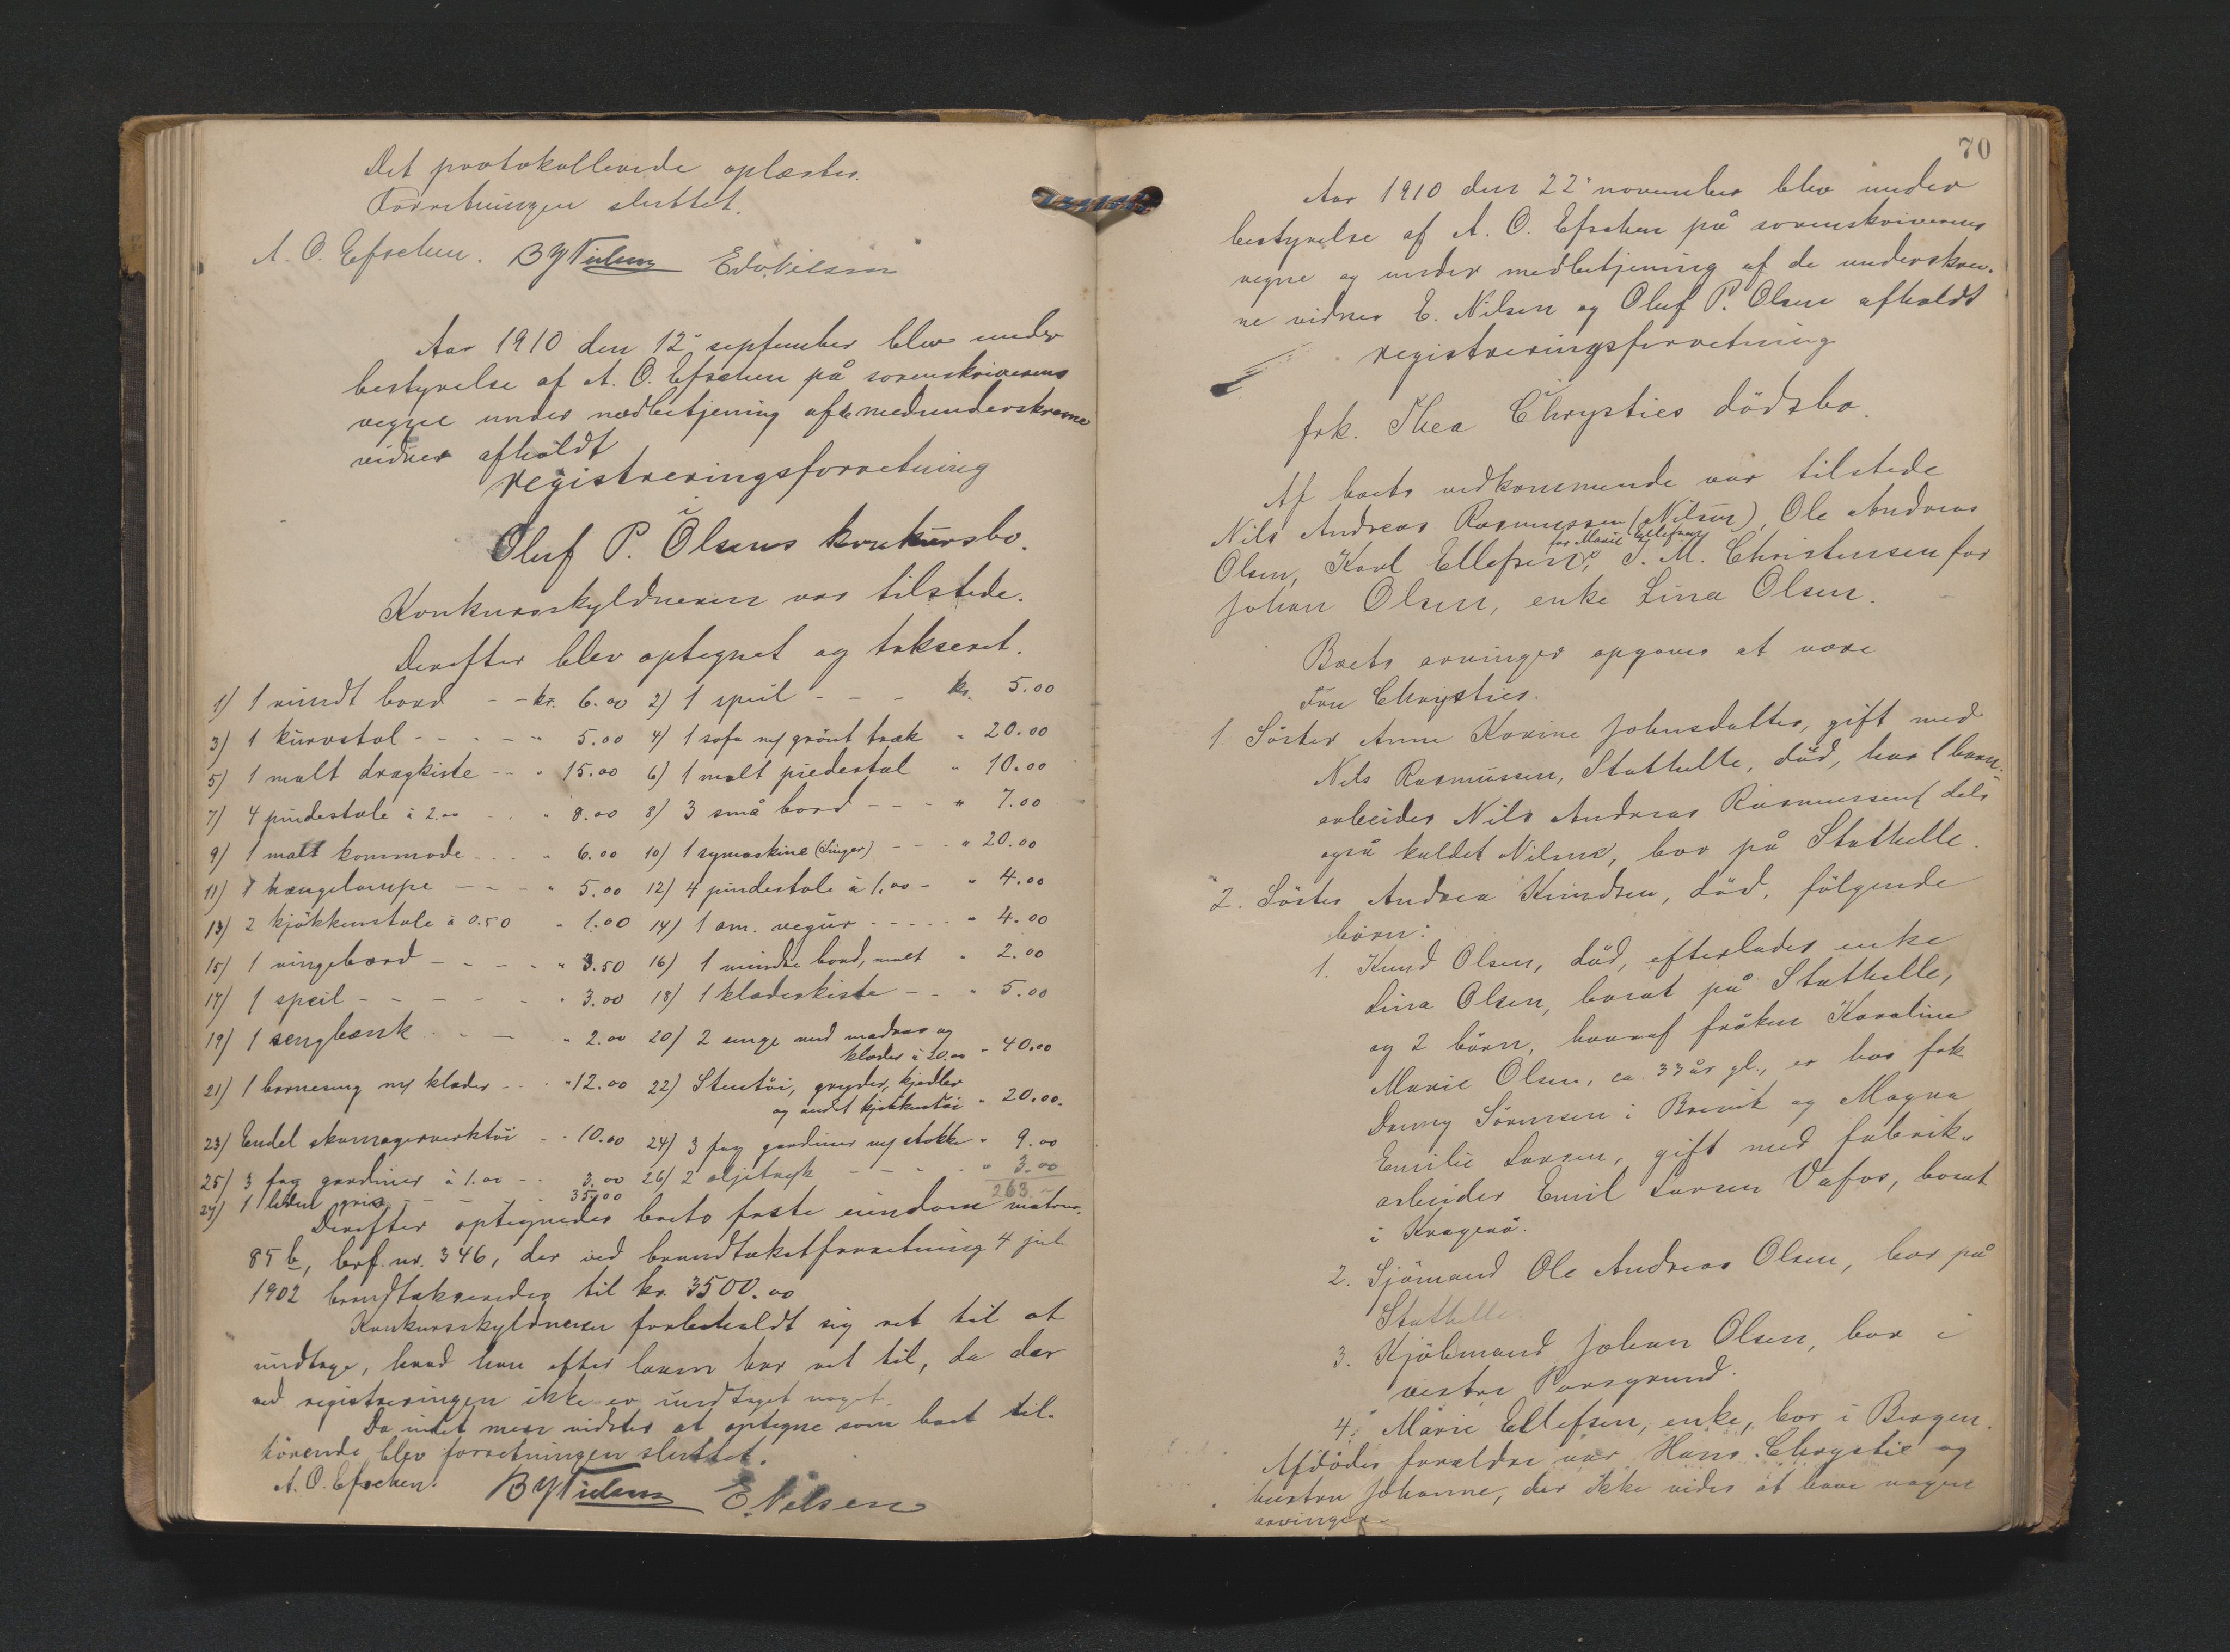 Det protokollerede oplæstes.
Forretningen sluttet.
A. O. Efschen. B Y Nielsen Edv. Nilsen
Aar 1910 den 12' september blev under
bestyrelse af A. O. Efschen på sorenskriverens
vegne under medbetjening af de medunderskrevne
vidner afholdt
registreringsforretning
i
Oluf P. Olsens konkursbo.
Konkursskyldneren var tilstede.
Derefter blev optegnet og takseret.
1) 1 rundt bord - - kr. 6.00 2) 1 speil - - - kr. 5.00
3) 1 kurvstol - - - - " 5.00 4) 1 sofa m/ grönt træk " 20.00
5) 1 malt dragkiste - - " 15.00 6) 1 malt piedestal " 10.00
7) 4 pindestole à 2.00 - - " 8.00 8) 3 små bord - - - " 7.00
9) 1 malt kommode - - - " 6.00 10) 1 symaskine (Singer) - - - " 20.00
11) 1 hængelampe - - - " 5.00 12) 4 pindestole à 1.00 - " 4.00
13) 2 kjökkenstole à 0.50 " 1.00 14) 1 am. vegur - - - - - " 4.00
15) 1 vingebord - - - - " 3.50 16) 1 mindre bord, malt " 2.00
17) 1 speil - - - - - " 3.00 18) 1 klædeskiste - - " 5.00
19) 1 sengbænk - - - " 2.00 20) 2 senge med madras og
klæder à 20.00 " 40.00
21) 1 barneseng m/ klæder - - - " 12.00 22) Stentöi, gryder, kjedler
og andet kjökkentöi " 20.00
23) Endel skomagerverktöi - - 10.00 24) 3 fag gardiner m/ stokke " 9.00
25) 3 fag gardiner à 1.00 - - 3.00 26) 2 oljetryk - - - - " 3.00
27) 1 liden gris - - - - - 35.00 263.-
Derefter optegnedes boets faste eiendom matrnr.
85 b, brf. nr. 346, der ved brandtakstforretning 4 juli
1902 brandtakseredes til kr. 3500.00
Konkursskyldneren forbeholdt sig ret til at
undtage, hvad han efter loven har ret til, da der
ved registreringen ikke er undtaget noget.
Da intet mere vidstes at optegne som boet til-
hörende blev forretningen sluttet.
A. O. Efschen. B Y Nielsen E. Nilsen
70
Aar 1910 den 22' november blev under
bestyrelse af A. O. Efschen på sorenskriverens
vegne og under medbetjening af de underskrev-
ne vidner E. Nilsen og Oluf P. Olsen afholdt
registreringsforretning
i
frk. Thea Chrysties dödsbo.
Af boets vedkommende var tilstede
Nils Andreas Rasmussen (Nilsen), Ole Andreas
for Marie Ellefsen
Olsen, Karl Ellefsen, J. M. Christensen for
Johan Olsen, enke Lina Olsen.
Boets arvinger opgaves at være
Frn Chrysties.
1. Söster Anne Karine Johnsdatter, gift med
Nils Rasmussen, Stathelle, död, har 1 barn:
arbeider Nils Andreas Rasmussen, dels
også kaldet Nilsen, bor på Stathelle.
2. Söster Andrea Knudsen, död, fölgende
börn:
1. Knud Olsen, död, efterlader enke
Lina Olsen, bosat på Stathelle,
og 2 börn, hvoraf fröken Karoline
Marie Olsen, ca. 33 år gl., er hos frk
Danny Sörensen i Brevik og Magna
Emilie Larsen, gift med fabrik-
arbeider Emil Larsen Vafos, bosat
i Kragerö.
2. Sjömand Ole Andreas Olsen, bor på
Stathelle.
3. Kjöbmand Johan Olsen, bor i
vestre Porsgrund.
4. Marie Ellefsen, enke, bor i Bergen.
Afdödes forældre var Hans Chrystie og
hustru Johanne, der ikke vides at have nogen
arvinger.